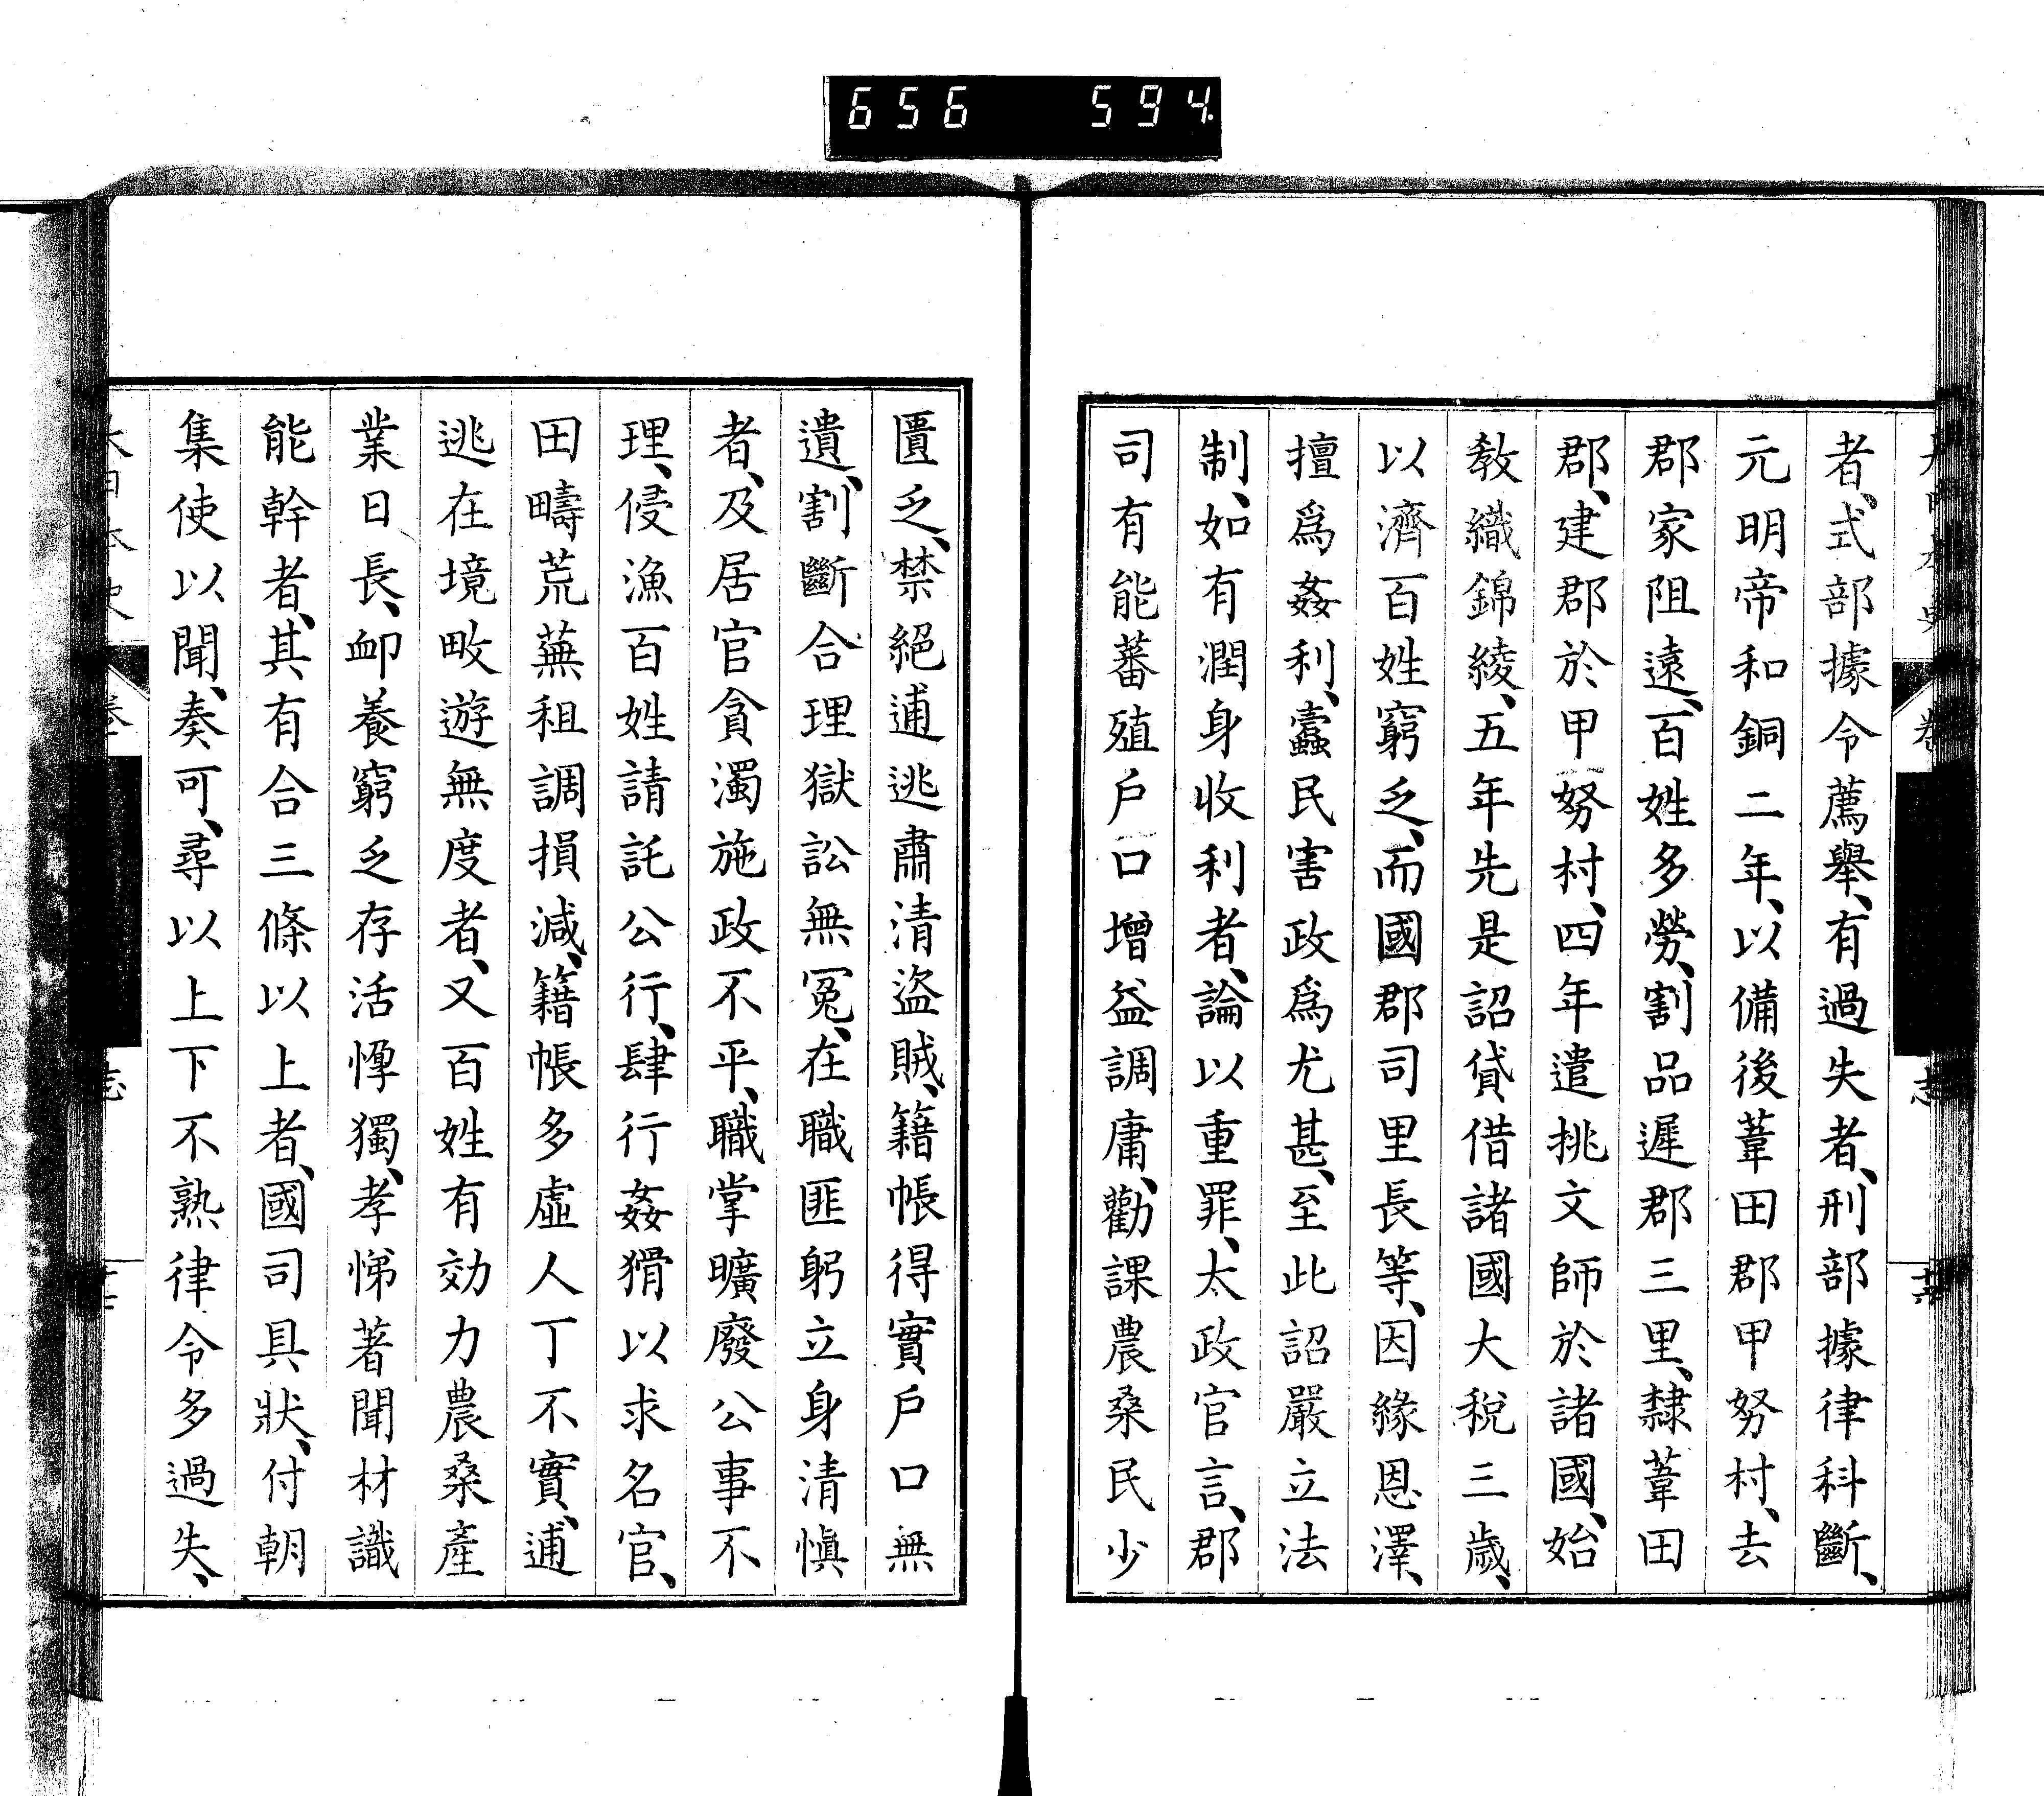 656 594.
者、式部據令薦擧、有過失者、刑部據律科斷、
元明帝和銅二年、以備後葦田郡甲努村、去
郡家阻遠、百姓多勞、割品遲郡三里、隸葦田
郡、建郡於甲努村、四年遣挑文師於諸國、始
敎織錦綾、五年先是詔貸借諸國大稅三歲、
以濟百姓窮乏、而國郡司里長等、因緣恩澤、
擅爲姦利、蠹民害政爲尤甚、至此詔嚴立法
制、如有潤身收利者、論以重罪、太政官言、郡
司有能蕃殖戶口增益調庸、勸課農桑民少
匱乏、禁絕逋逃肅清盜賊、籍帳得實戶口無
遺、割斷合理獄訟無冤、在職匪躬立身淸愼
者、及居官貪濁施政不平、職掌曠廢公事不
理、侵漁百姓請託公行、肆行姦猾以求名官、
田疇荒蕪租調損減、籍帳多虛人丁不實、逋
逃在境畋遊無度者、又百姓有効力農桑產
業日長、卹養窮乏存活惸獨、孝悌著聞材識
能幹者、其有合三條以上者、國司具狀、付朝
集使以聞、奏可、尋以上下不熟律令多過失、
大日本史 卷 志